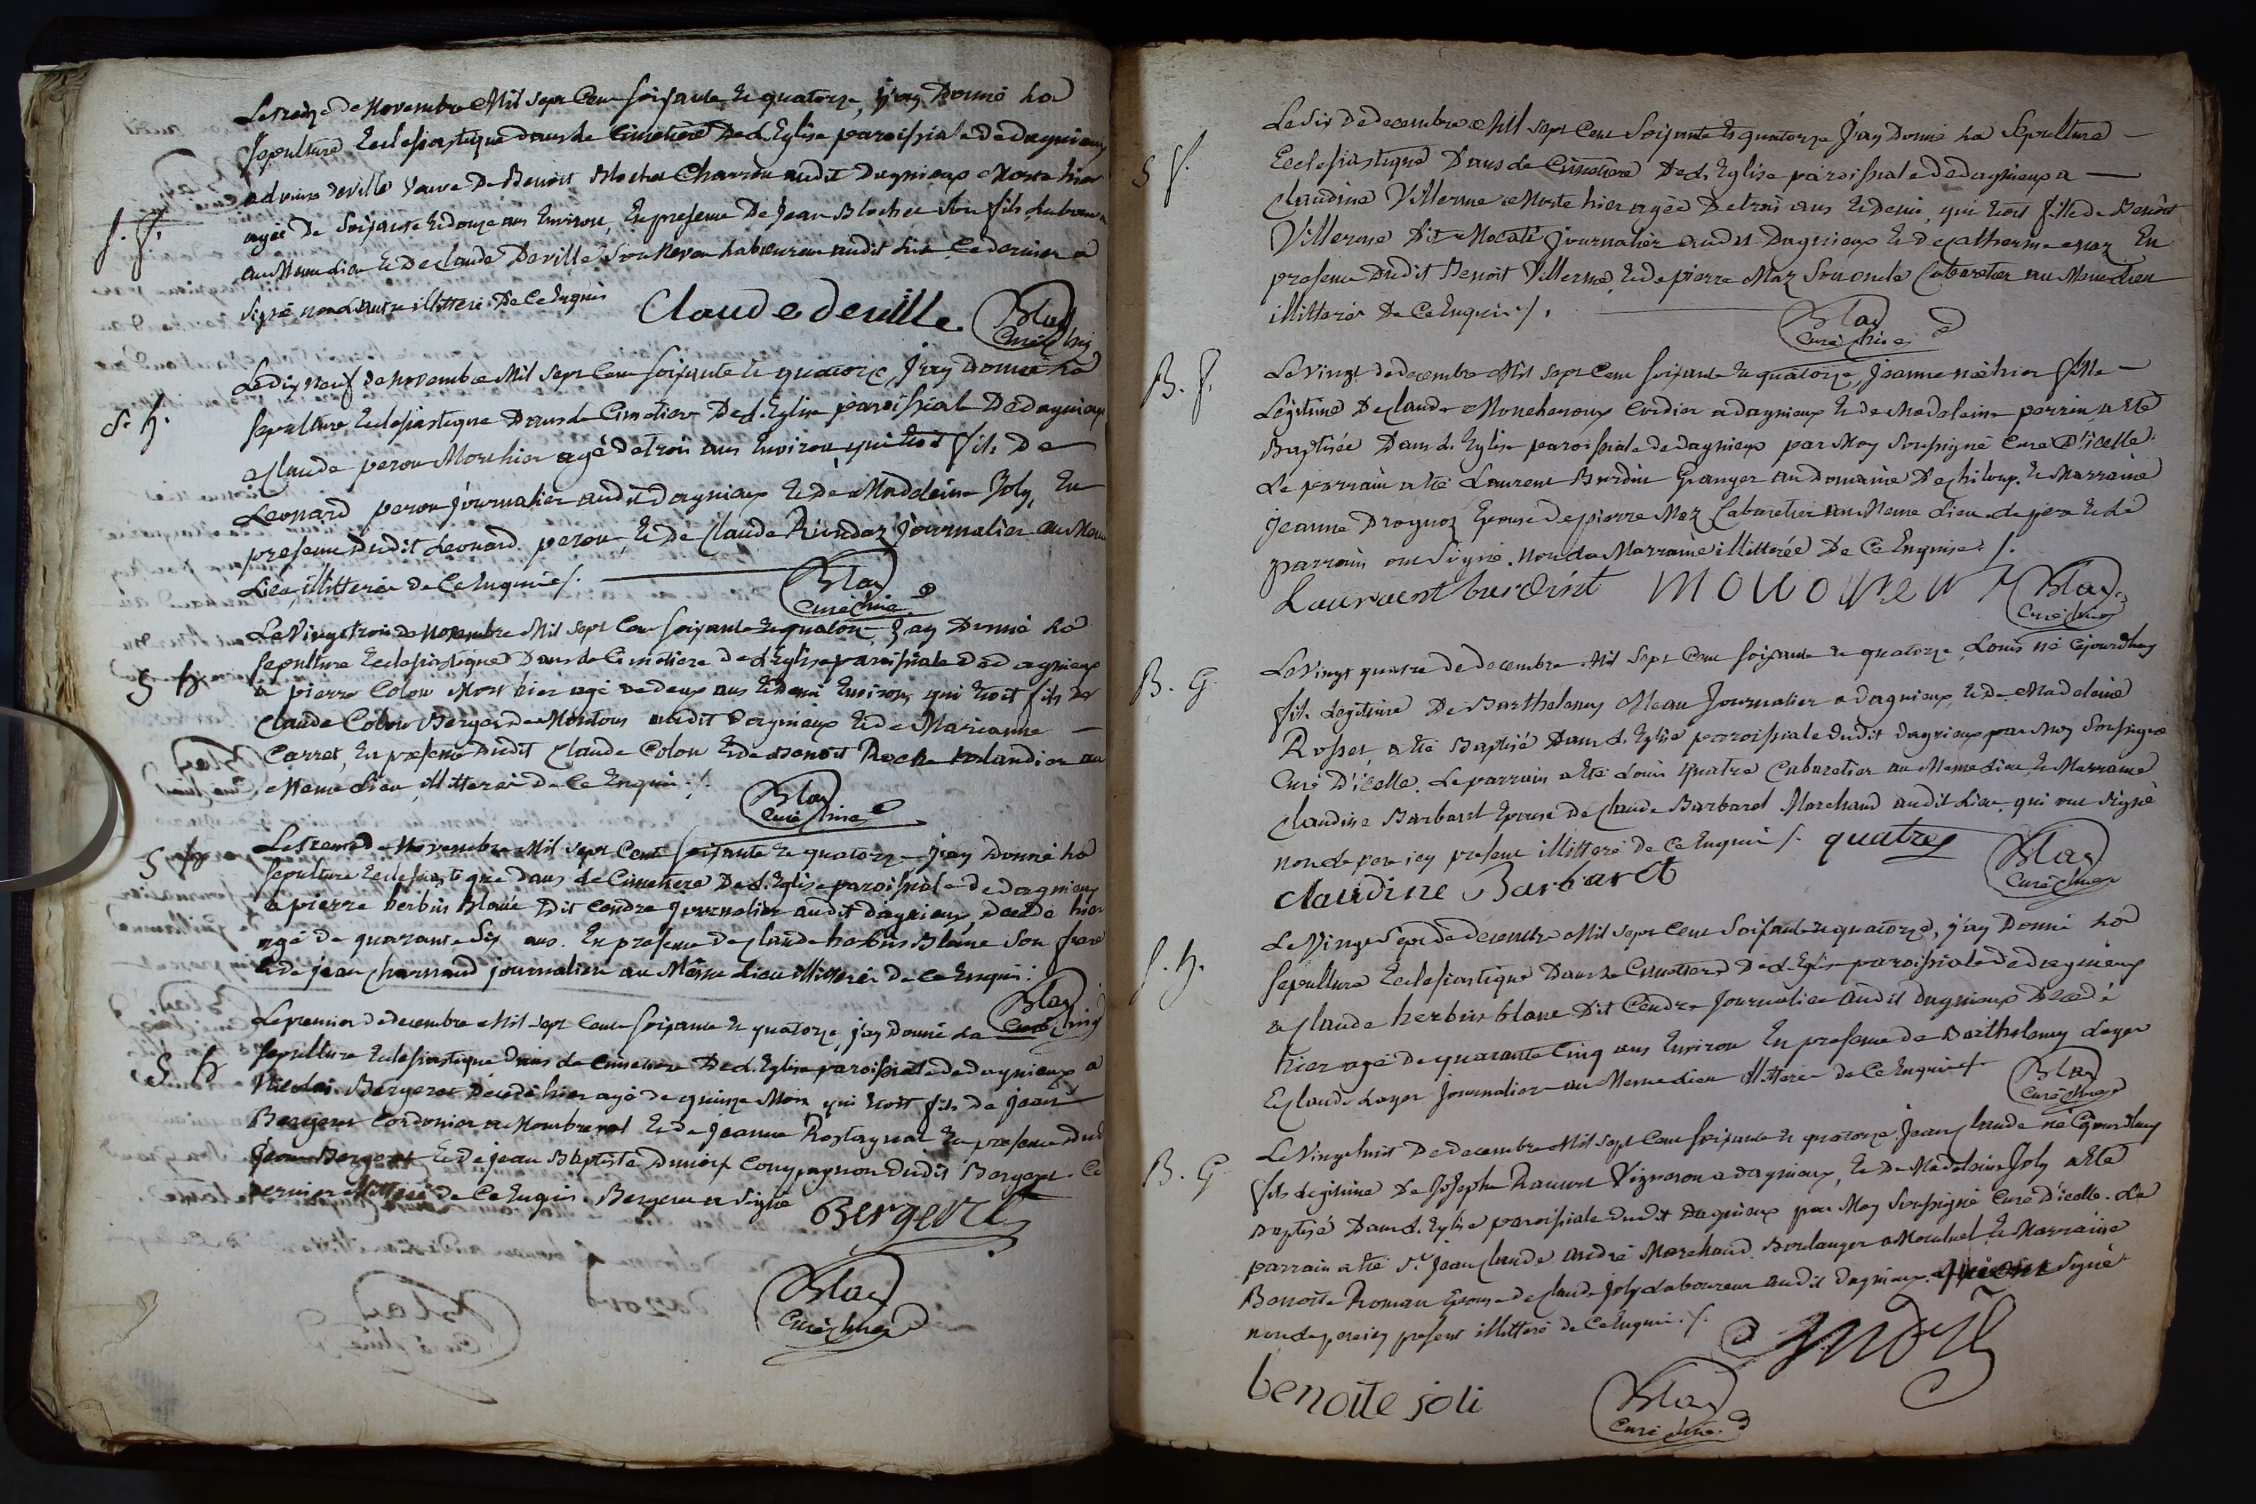 Le treize de Novembre Mil Sept Cent Soixante et quatorze, j'ay Donné La
Sepulture Ecclesiastique dans le Cimetiere De L'Eglise paroissiale De dagnieux
Deville veuve De Benoit Blochet Charron audit Dagnieux Morte hier
agée De Soixante et douze ans Environ, En presence De Jean Blochet Son fils
au Meme Lieu et De Claude Deville Son Neveu Laboureur audit Lieu Ce dernier a
signé non L'autre illitteré De Ce Enquis
Claude deville
Blay
Curé
S. f.
Le dix neuf de Novembre Mil Sept Cent Soixante et quatorze, J'ay Donné La
S. h.
Sepulture Ecclesiastique Dans le Cimetiere De L'Eglise paroissiale De dagnieux
a Claude peron Mort hier agé de trois ans Environ, qui Etoit fils De
Leonard peron journalier audit dagnieux et De Madeleine Joly, En
presence Dudit Leonard peron, et De Claude Riondaz Journalier au Meme
Lieu, illitterés de Ce Enquis /.
Blay
Curé
Le Vingt trois de Novembre Mil Sept Cent Soixante et quatorze J'ay Donné La
S h
Sepulture Ecclesiastique Dans le Cimetiere de L'Eglise paroissiale de dagnieux
a pierre Colon Mort hier agé de deux ans et Demi Environ, qui Etoit fils de
Claude Colon Berger de Moutons audit dagnieux et De Marianne
Carret, En presence Dudit Claude Colon et de Benoit Roche au
Meme Lieu, illitterés De Ce Enquis /.
Blay
Curé
Le trente de Novembre Mil Sept Cent Soixante et quatorze j'ay Donné La
S h
Sepulture Ecclesiastique dans le Cimetiere De L'Eglise paroissiale De dagnieux
a pierre herbin Blanc Dit Cendre journalier audit dagnieux, decedé hier
agé de quarante Six ans. En presence de Claude herbin Blanc Son frere
et de jean Charnaud journalier au Même Lieu illitterés de Ce Enquis.
Blay
Curé
Le premier de decembre Mil Sept Cent Soixante et quatorze, j'ay Donné La
S h
Sepulture Ecclesiastique dans le Cimetiere De L'Eglise paroissiale de dagnieux a
Nicolas Bergeret Decedé hier agé de quinze Mois qui Etoit fils de Jean
Bergeret Cordonier a Montluel et De Jeanne Rostagnat En presence Dudit
Jean Bergeret et De jean Baptiste Compagnon Dudit Bergeret. Ce
dernier illitteré de Ce Enquis. Bergeret a Signé
Bergeret
Blay
Curé
Le Six De decembre Mil Sept Cent Soixante et quatorze J'ay Donné La Sepulture
S f.
Ecclesiastique Dans le Cimetiere De L'Eglise paroissiale De dagnieux a
Claudine Villerme Morte hier agée De trois ans et Demi, qui Etoit fille De Benoit
Villerme Dit journalier audit Dagnieux et de Catherine Maz En
presence Dudit Benoit Villerme, et de pierre Maz Son oncle Cabaretier au Meme Lieu
illitterés De Ce Enquis /.
Blay
Curé
B. f.
Le Vingt de decembre Mil Sept Cent Soixante et quatorze, Jeanne née hier fille
Légitime De Claude Cordier a dagnieux et de Madeleine perrin, a Eté
Baptisée Dans L'Eglise paroissiale de dagnieux par Moy Soussigné Curé D'icelle.
Le parrain a été Laurent Burdin Granger au Domaine De Chiloup. et Marraine
jeanne Epouse De pierre Maz Cabaretier au Meme Lieu. Le pere et Le
parrain ont Signé. Non La Marraine illitterée De Ce Enquise /.
Laurent burdint
Blay
Curé
B. G.
Le Vingt quatre De decembre Mil Sept Cent Soixante et quatorze, Louis né Cejourdhuy
fils Legitime De Barthelemy Journalier a dagnieux, et De Madeleine
Rosset, a été Baptisé Dans L'Eglise paroissiale dudit dagnieux par Moy Soussigné
Curé D'icelle. Le parrain a Eté Louis quatre Cabaretier au Meme Lieu, et Marraine
Claudine Barbaret Epouse De Claude Barbaret Marchand audit Lieu qui ont Signé
non Le pere icy present illitteré de Ce Enquis /.
quatre
claudine Barbaret
Blay
Curé
Le Vingt Sept De decembre Mil Sept Cent Soixante et quatorze, j'ay Donné La
S. h.
Sepulture Ecclesiastique Dans le Cimetiere De L'Eglise paroissiale De dagnieux
a Claude herbin blanc Dit Cendre Journalier audit Dagnieux Decedé
hier agé De quarante Cinq ans Environ En presence de Barthelemy Layer
Et Claude Layer Journalier au Meme Lieu illitterés De Ce Enquis /.
Blay
Curé
B. G
Le Vingt huit De decembre Mil Sept Cent Soixante et quatorze Jean Claude né Cejourdhuy
fils Legitime De Joseph Vigneron a dagnieux, et De Madeleine Joly a Eté
Baptisé Dans L'Eglise paroissiale dudit Dagnieux par Moy Soussigné Curé D'icelle. Le
parrain a Eté Sr. Jean Claude André Marchand Boulanger a Montluel et Marraine
Benoite Roman Epouse de Claude Joly Laboureur audit dagnieux. qui ont Signé
non Le pere icy present illitteré de Ce Enquis. /.
André
benoite joli
Blay
Curé